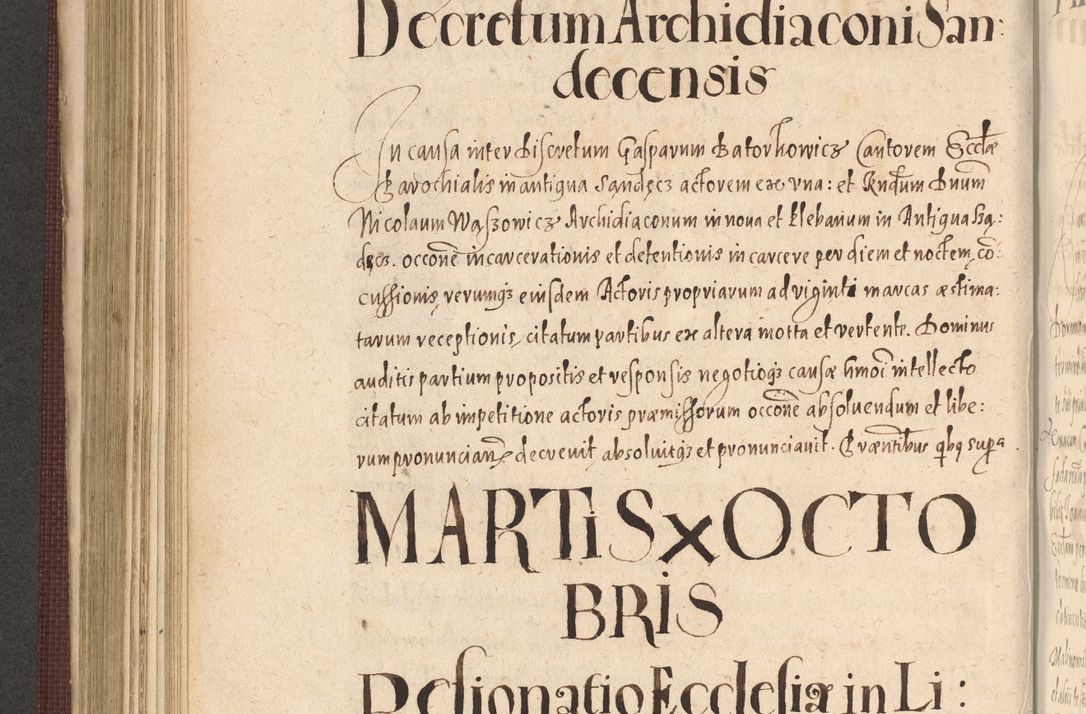 Decretum Archidiaconi San:
decensis
In causa inter Discretum Gasparum Batorhowicz Cantorem Eccłæ
Parochialis in antiqua Sandęcz actorem ex vna: et Rndum Dnum
Nicolaum Wąszowicz Archidiaconum in noua et Plebanum in Antiqua Są:
decz. occone incarcerationis et detentionis in carcere per diem et noctem, co:
cussionis, rerumq3 eiusdem Actoris propriarum ad viginti marcas æstima:
tarum receptionis, citatum partibus ex altera motta et vertente. Dominus
auditis partium propositis et responsis negotioq3 causæ hmoi intellecto
citatum ab impetitione actoris præmissorum occone absoluendum et libe:
rum pronuncian: decreuit, absoluitq3 et pronunciauit. Præntibus qbq supra
MARTIS X OCTO
BRIS
Designatio Ecclesiæ in Li: